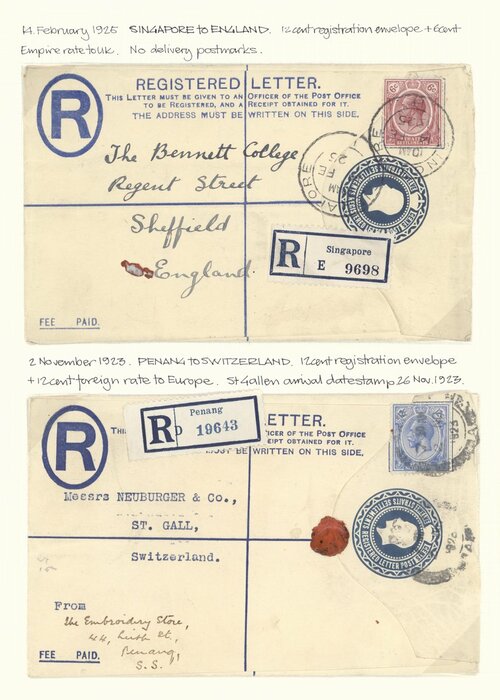 14 February 1925 SINGAPORE to ENGLAND. 12cent registration envelope + 6cent
Empire rate to UK. No delivery postmarks.
REGISTERED LETTER.
THIS LETTER MUST BE GIVEN TO AN OFFICER OF THE POST OFFICE
TO BE REGISTERED, AND A RECEIPT OBTAINED FOR IT.
THE ADDRESS MUST BE WRITTEN ON THIS SIDE.
R
The Bennett College
Regent Street
Sheffield
England.
R
Singapore
E 9698
FEE PAID.
2 November 1923. PENANG to SWITZERLAND. 12cent registration envelope
+ 12cent foreign rate to Europe. St Gallen arrival datestamp 26 Nov. 1923.
R
R
Penang
D 19643
ETTER.
THI
FICER OF THE POST OFFICE
EIPT OBTAINED FOR IT.
UST BE WRITTEN ON THIS SIDE,
Messrs NEUBURGER & Co.,
ST. GALL,
Switzerland.
STRAITS SETTLEMENTS REGISTERED LETTER POSTAGE
From
The Embroidery Store,
44, Leith St,
Penang,
S.S.
FEE PAID.